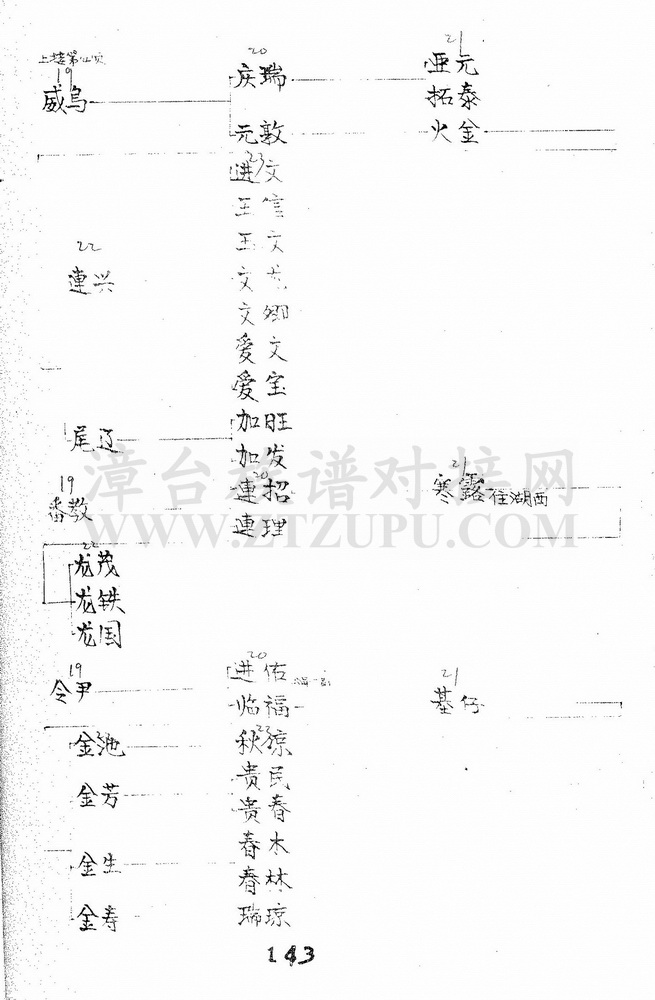 19 20 21
威鸟 庆瑞 亜元
拓泰
元敦 火金
23
进文
王信
22 王文
連兴 文
文
爱文
爱宝
尾辽 加旺
加发
19 20 21
番教 連招 寒露 住湖西
連理
漳台族谱对接网
WWW.ZTZUPU.COM
22
龙茂
龙铁
龙国
19 20 21
令尹 进佑 基仔
临福
23
金池 秋琼
贵民
金芳 贵春
春木
金生 春林
金寿 瑞琼
143